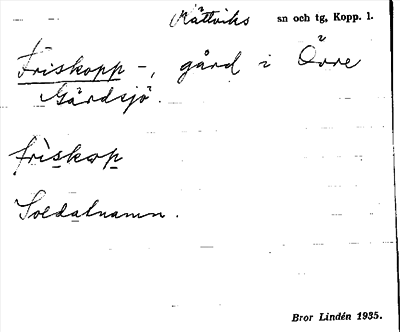 Rättviks sn och tg, Kopp. l.
Friskopp -, gård i Övre
Gärdsjö.
frìskop
Soldatnamn.
Bror Lindén 1935.